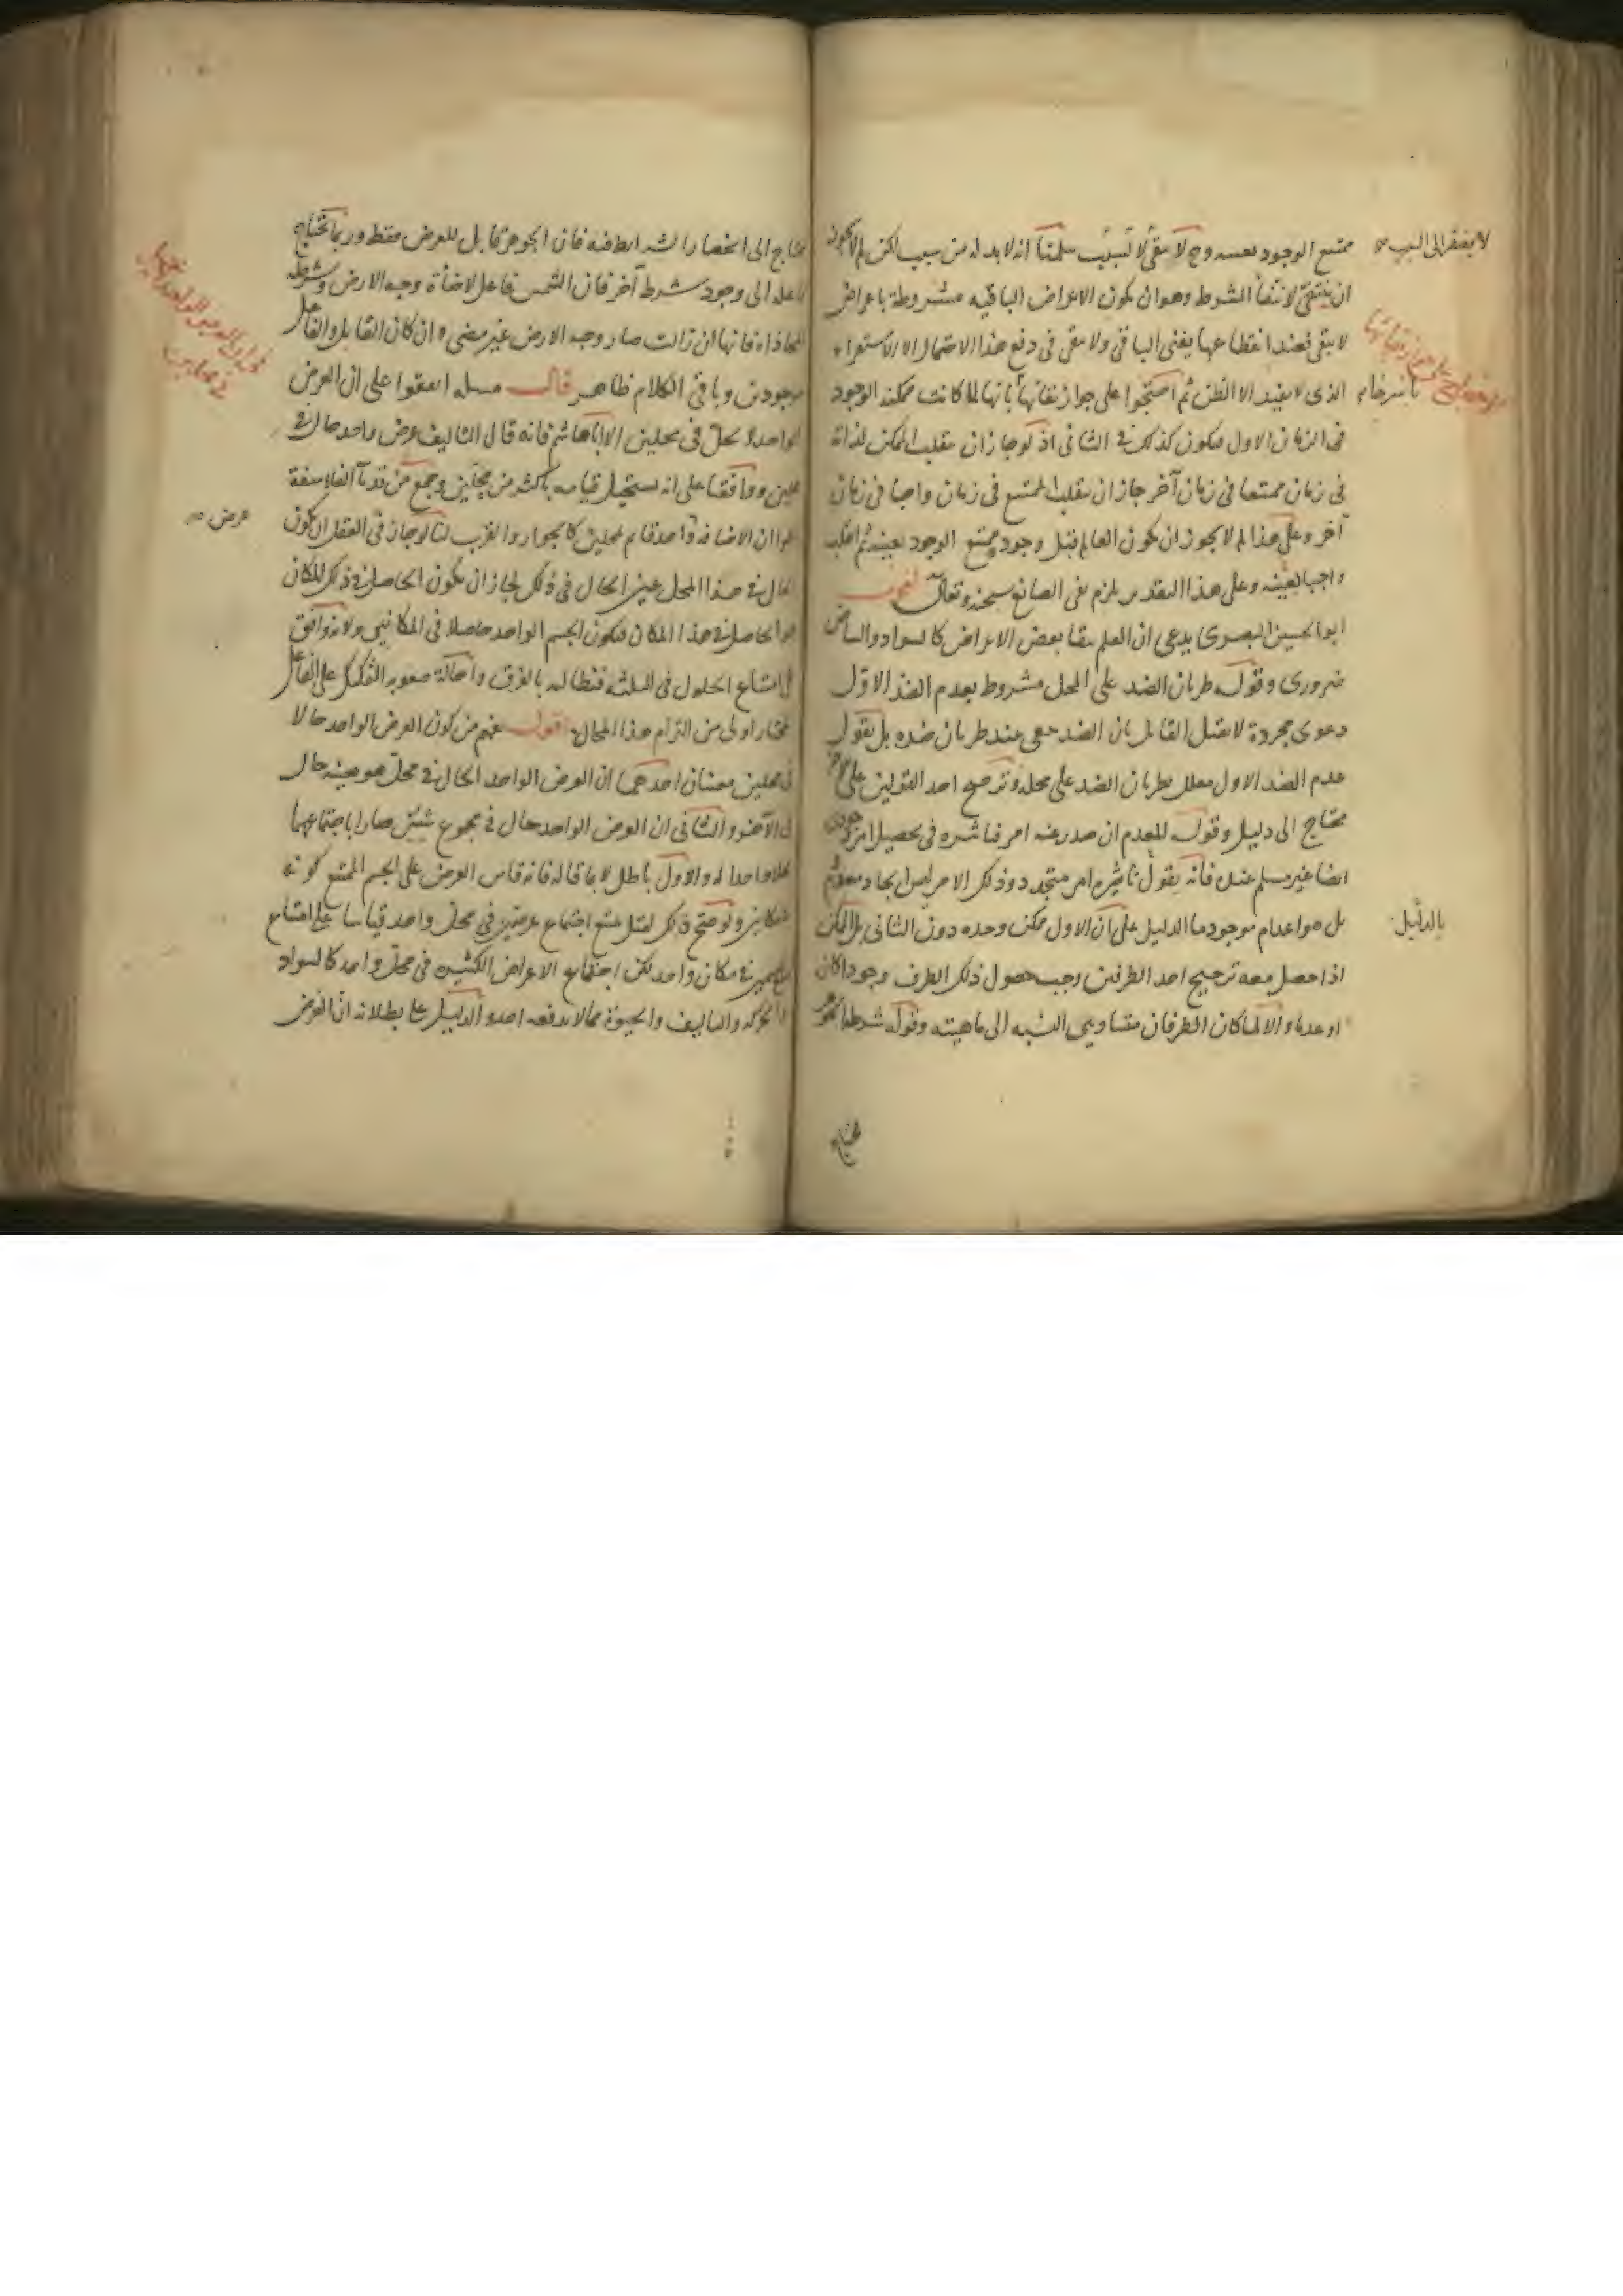 ممتنع الوجود بعينه وح لا يبقى لا لسبب سلمنا انه لابد له من سبب لكن لم لا يجوز
لا يفتقر الى السبب
ان ينتفى لانتفأ الشرط وهو ان يكون الاعراض الباقيه مشروطة باعراض
لا يبقى فعند انقطاعها يفنى الباقى ولا يبقى فى دفع هذا الاحتمال الا الاستقراء
الذى لا يفيد الا الظن ثم احتجوا على جواز بقائها بانها لما كانت ممكنه الوجود
فى الزمان الاول فيكون كذلك فى الثانى اذ لو جاز ان ينقلب الممكن لذاته
فى زمان ممتنعا فى زمان آخر جاز ان ينقلب الممتنع فى زمان واجبا فى زمان
آخر وعلى هذا لم لا يجوز ان يكون العالم قبل وجوده ممتنع الوجود بعينه ثم انقلب
واجبا لعينه وعلى هذا التقدير يلزم نفى الصانع سبحنه وتعالى اقول
ابو الحسين البصرى يدعى ان العلم ببقا بعض الاعراض كالسواد والبياض
ضرورى وقوله طريان الضد على المحل مشروط بعدم الضد الاول
دعوى مجردة لا يقبل القايل بان الضد يبقى عند طريان ضده بل يقول
عدم الضد الاول معلل بطريان الضد على محله وترجيح احد القولين على الآخر
محتاج الى دليل وقوله المعدم ان صدر عنه امر فتاثيره فى تحصيل امر وجودى
ايضا غير مسلم عنده فانه يقول تاثيره امر متجدد وذلك الامر ليس ايجاد معدوم
بل هو اعدام موجود ما الدليل على ان الاول ممكن وحده دون الثانى بل الممكن
بالدليل
اذا حصل معه ترجيح احد الطرفين وجب حصول ذلك الطرف وجودا كان
او عدما والا لما كان الطرفان متساويى النسبه الى ماهيته وقوله شرط الجوهر
محتاج الى انحصار الشرايط فيه فان الجوهر قابل للعرض فقط وربما يحتاج
فاعله الى وجود شرط آخر فان الشمس فاعل لاضأة وجه الارض وشرط
المحاذاه فانها ان زالت صار وجه الارض غير مضى وان كان القابل والفاعل
موجودين وباقى الكلام ظاهر قال مسله اتفقوا على ان العرض
الواحد لا يحل فى محلين الا اباهاشم فانه قال التاليف عرض واحد حال فى
محلين ووافقنا على انه يستحيل قيامه باكثر من محلين وجمع من قدمآ الفلاسفة
عرض
قالوا ان الاضافه واحد قايم بمحلين كالجوار والقرب لنا لو جاز فى العقل ان يكون
الحال فى هذا المحل عين الحال فى ذلك لجاز ان يكون الحاصل فى ذلك المكان
هو الحاصل فى هذا المكان فيكون الجسم الواحد حاصلا فى المكانين ولانه وافق
فى امتناع الحلول فى الثلثه فنطالبه بالفرق واحالة صعوبه التفكيك على الفاعل
المختار اولى من التزام هذا المحال اقول يفهم من كون العرض الواحد حالا
فى محلين معنيان احدهما ان العرض الواحد الحال فى محل هو بعينه حال
فى الآخر والثانى ان العرض الواحد حال فى مجموع شيئين صارا باجتماعهما
محلا واحدا له والاول باطل لا بما قاله فانه قاس العرض على الجسم الممتنع كونه
فى مكانين ولو صح ذلك لقيل يمتنع اجتماع عرضين فى محل واحد قياسا على امتناع
جسمين فى مكان واحد لكن اجتماع الاعراض الكثيره فى محل واحد كالسواد
والحركه والتاليف والحيوة مما لا يدفعه احد والدليل على بطلانه ان العرض